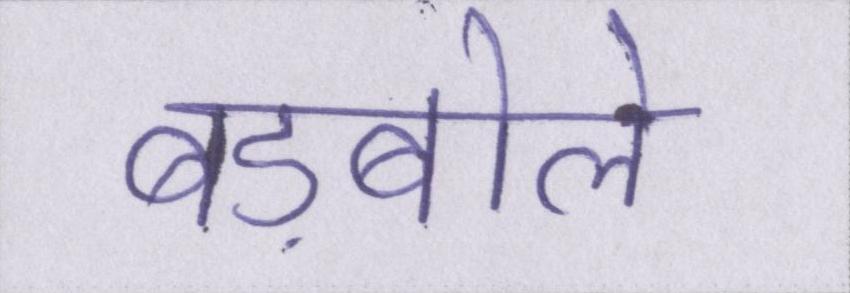 बड़बोले